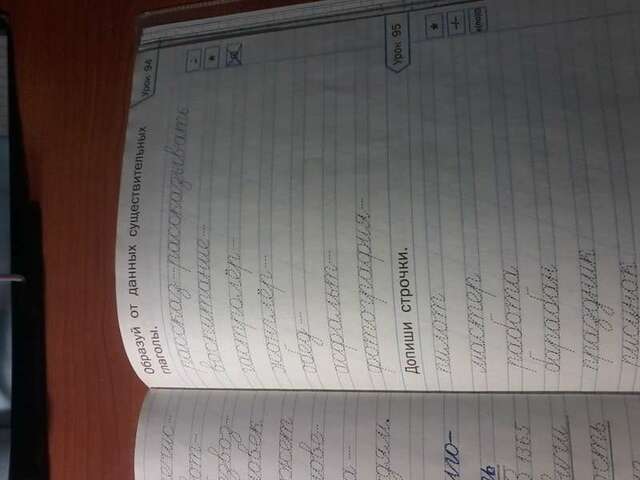 Образуй от данных существительных
глаголы.
Урок 94
рассказ – рассказывать
воспитание –
гастролёр –
жонглёр –
обед –
асфальт –
фотография –
Допиши строчки.
Урок 95
пилот
мастер
работа
барабан
праздник
рисунок
от-
ловек
жет
дям.
1365